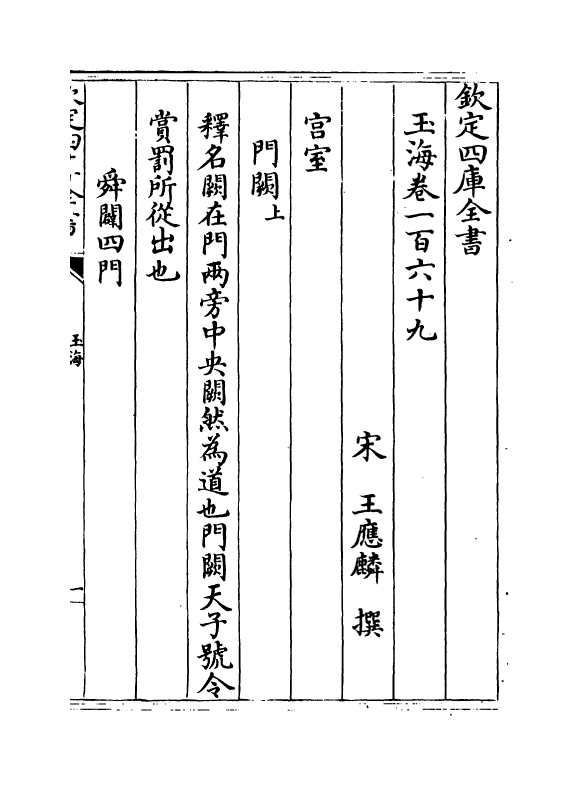 欽定四庫全書
玉海卷一百六十九
宋　王應麟　撰
宮室
門闕上
釋名闕在門兩旁中央闕然為道也門闕天子號令
賞罰所從出也
舜闢四門
欽定四庫全書
玉海
一